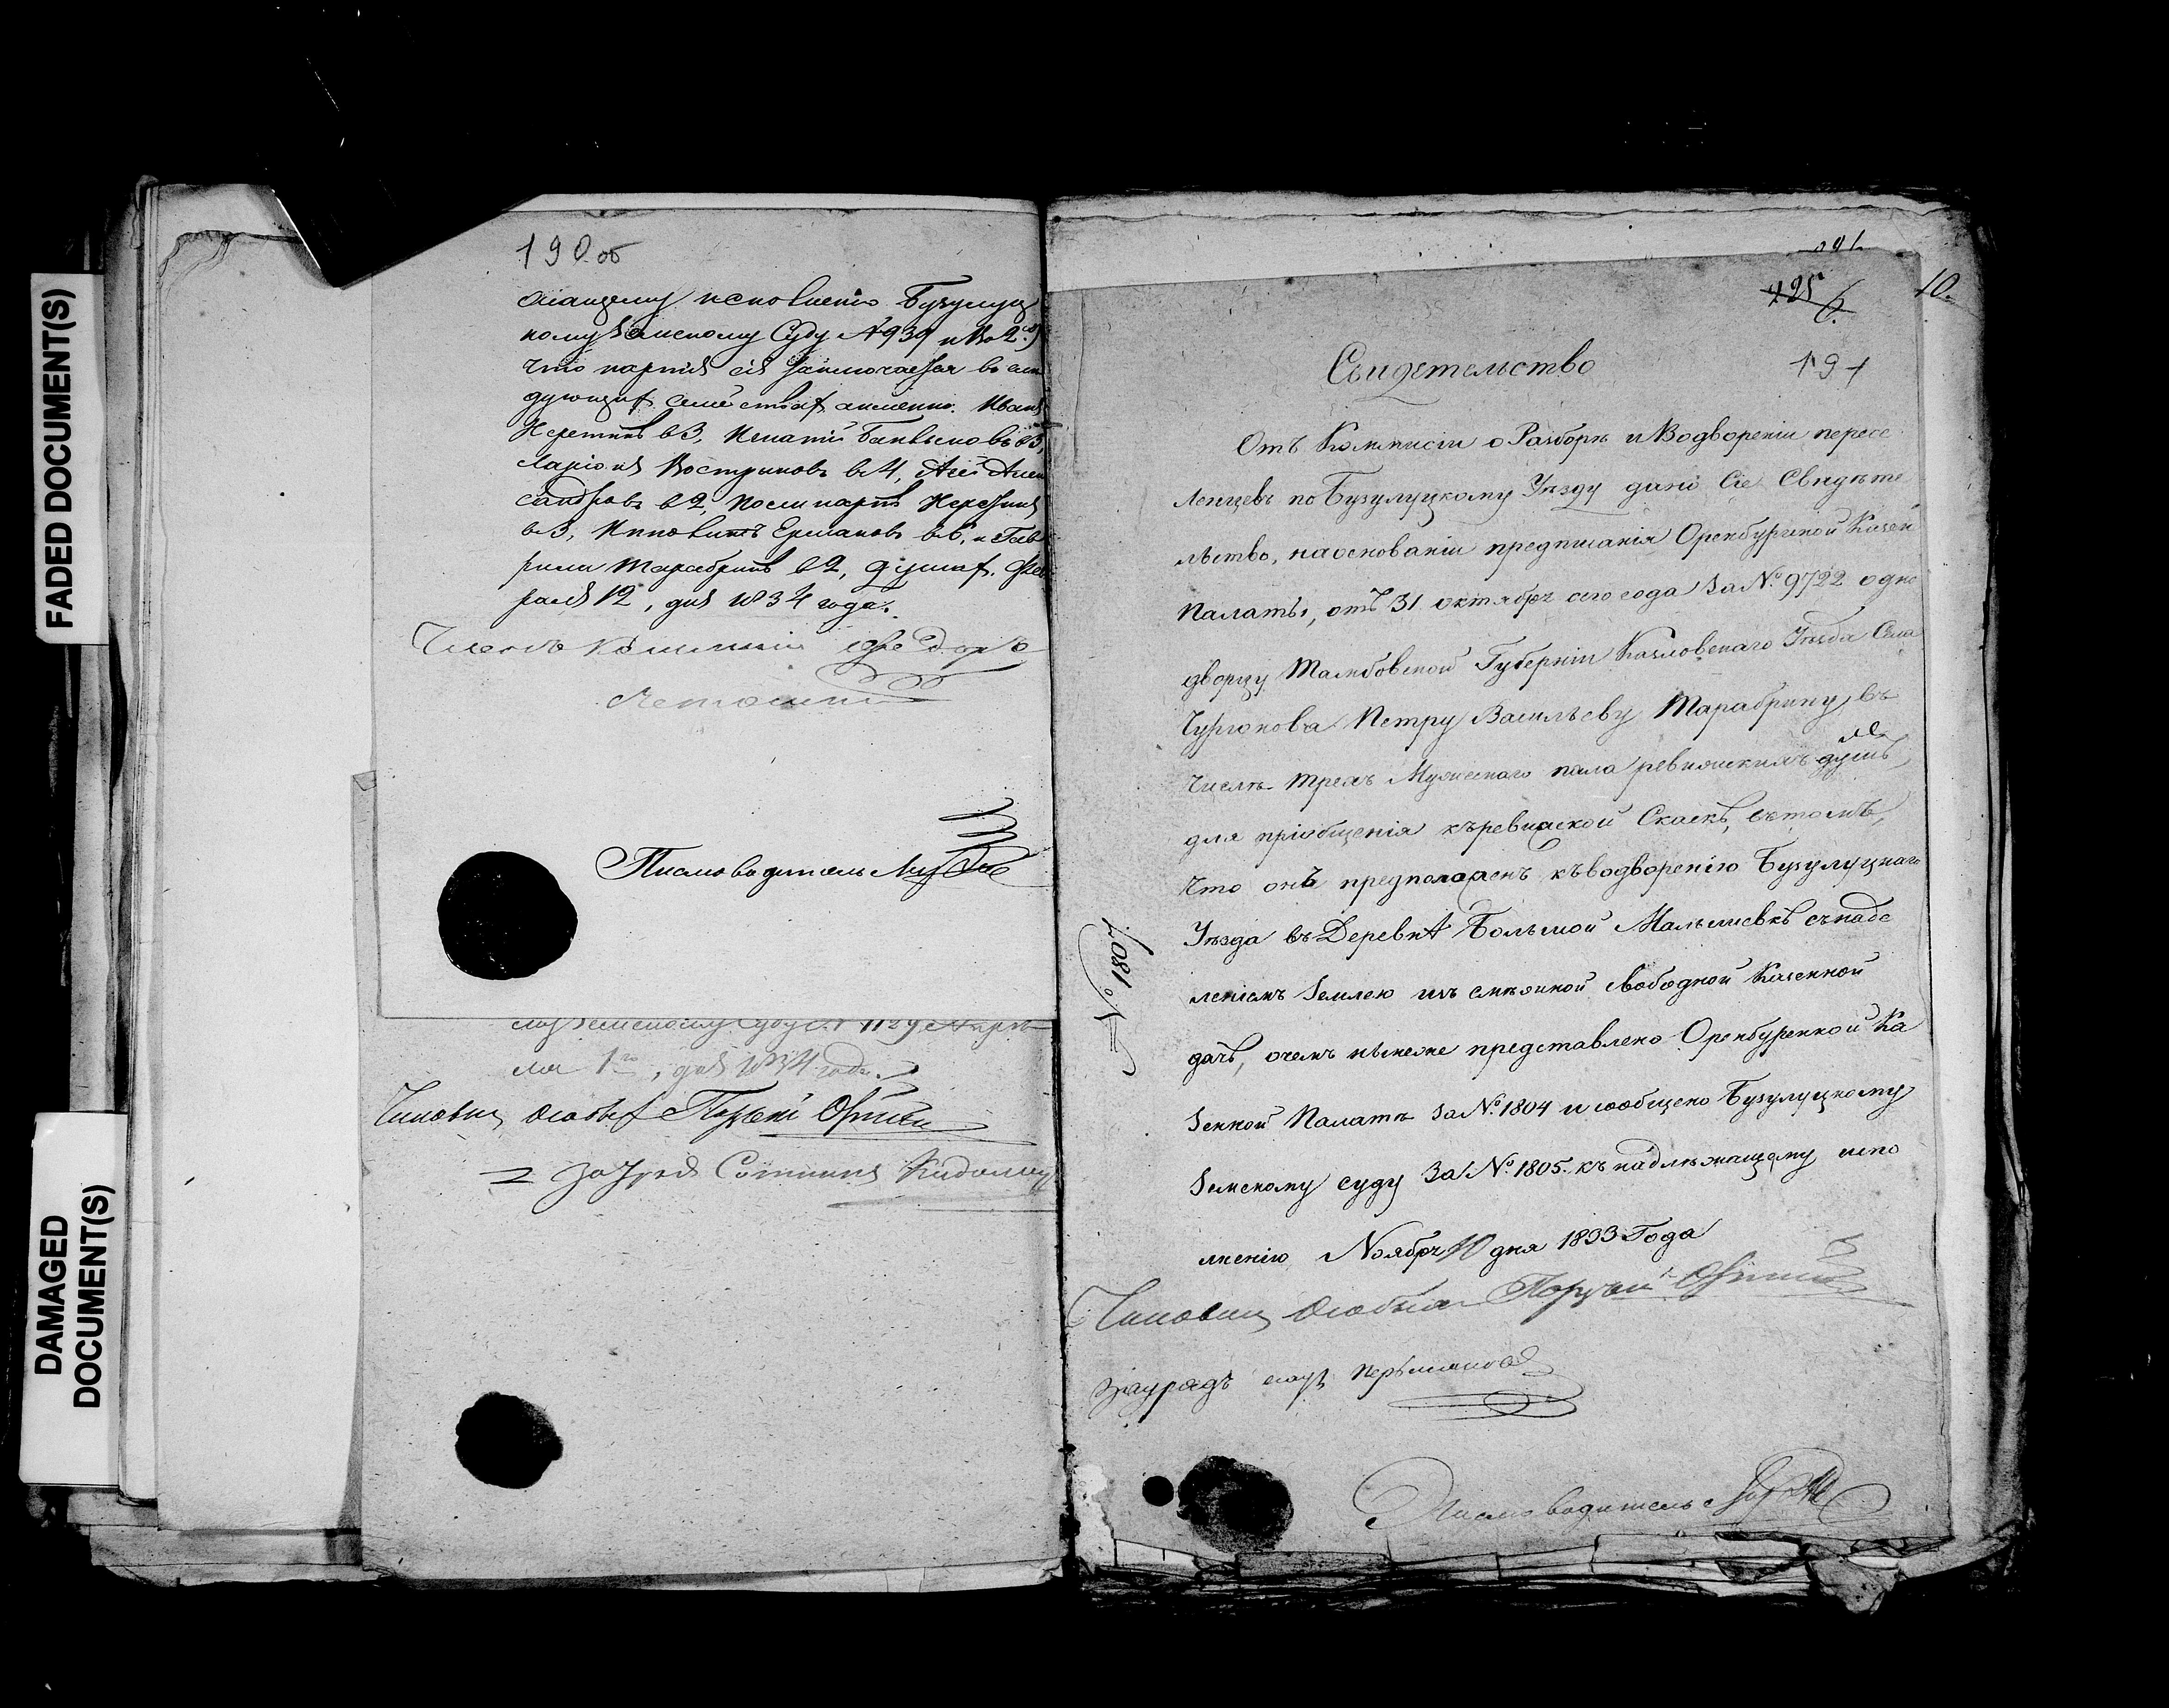 FADED DOCUMENT(S)
DAMAGED
DOCUMENT(S)
190 об
лѣжащему исполненію Бузулуц
кому Земскому Суду № 939 и Во 2х)
что партія сія заключается въ слѣ
дующихъ семействахъ а именно. Иванъ
въ 3, Игнатій въ 3,
Ларіонъ Востриковъ въ 4, Агѣй Алек
сандровъ въ 2, Поликарпъ
въ 3, Ермаковъ въ 6, и Гав
рила Тарабринъ въ 2, душах. Фев
раля 12, дня 1834 года.
Членъ Коммисіи Федоръ
Письмоводитель
му Земскому Суду № 1129 Апрѣ
ля 1го, дня 1834 года.
Чиновник Особых Поруч
Заурядъ Сотникъ
425
10.
Свидетельство
191
Отъ Коммисіи о Разборѣ и Водвореніи пересе
ленцевъ по Бузулуцкому Уѣзду дано Сіе Свидѣте
льство, на основаніи предписанія Оренбургской Казен
Палаты, отъ 31 октября сего года За № 9722 одно
дворцу Тамбовской Губерніи Козловскаго Уѣзда Села
Чурюкова Петру Васильеву Тарабрину, въ
числѣ трехъ Мужескаго пола ревижскихъ душъ,
для пріобщенія къ ревиской Сказкѣ, съ томъ,
что онъ предположенъ къ водворенію Бузулуцкаго
Уѣзда въ Деревнѣ Большой Малышевкѣ съ надѣ
леніемъ Землею изъ смѣжной свободной Казенной
дачѣ, о чемъ нынеже представлено Оренбурской Ка
зенной Палатѣ За № 1804 и сообщено Бузулуцкому
Земскому суду За № 1805. къ надлѣжащему испо
лненію Ноября 10 дня 1833 Года
№ 1807
Чиновник Особых Поруч
Заурядъ
Письмоводитель